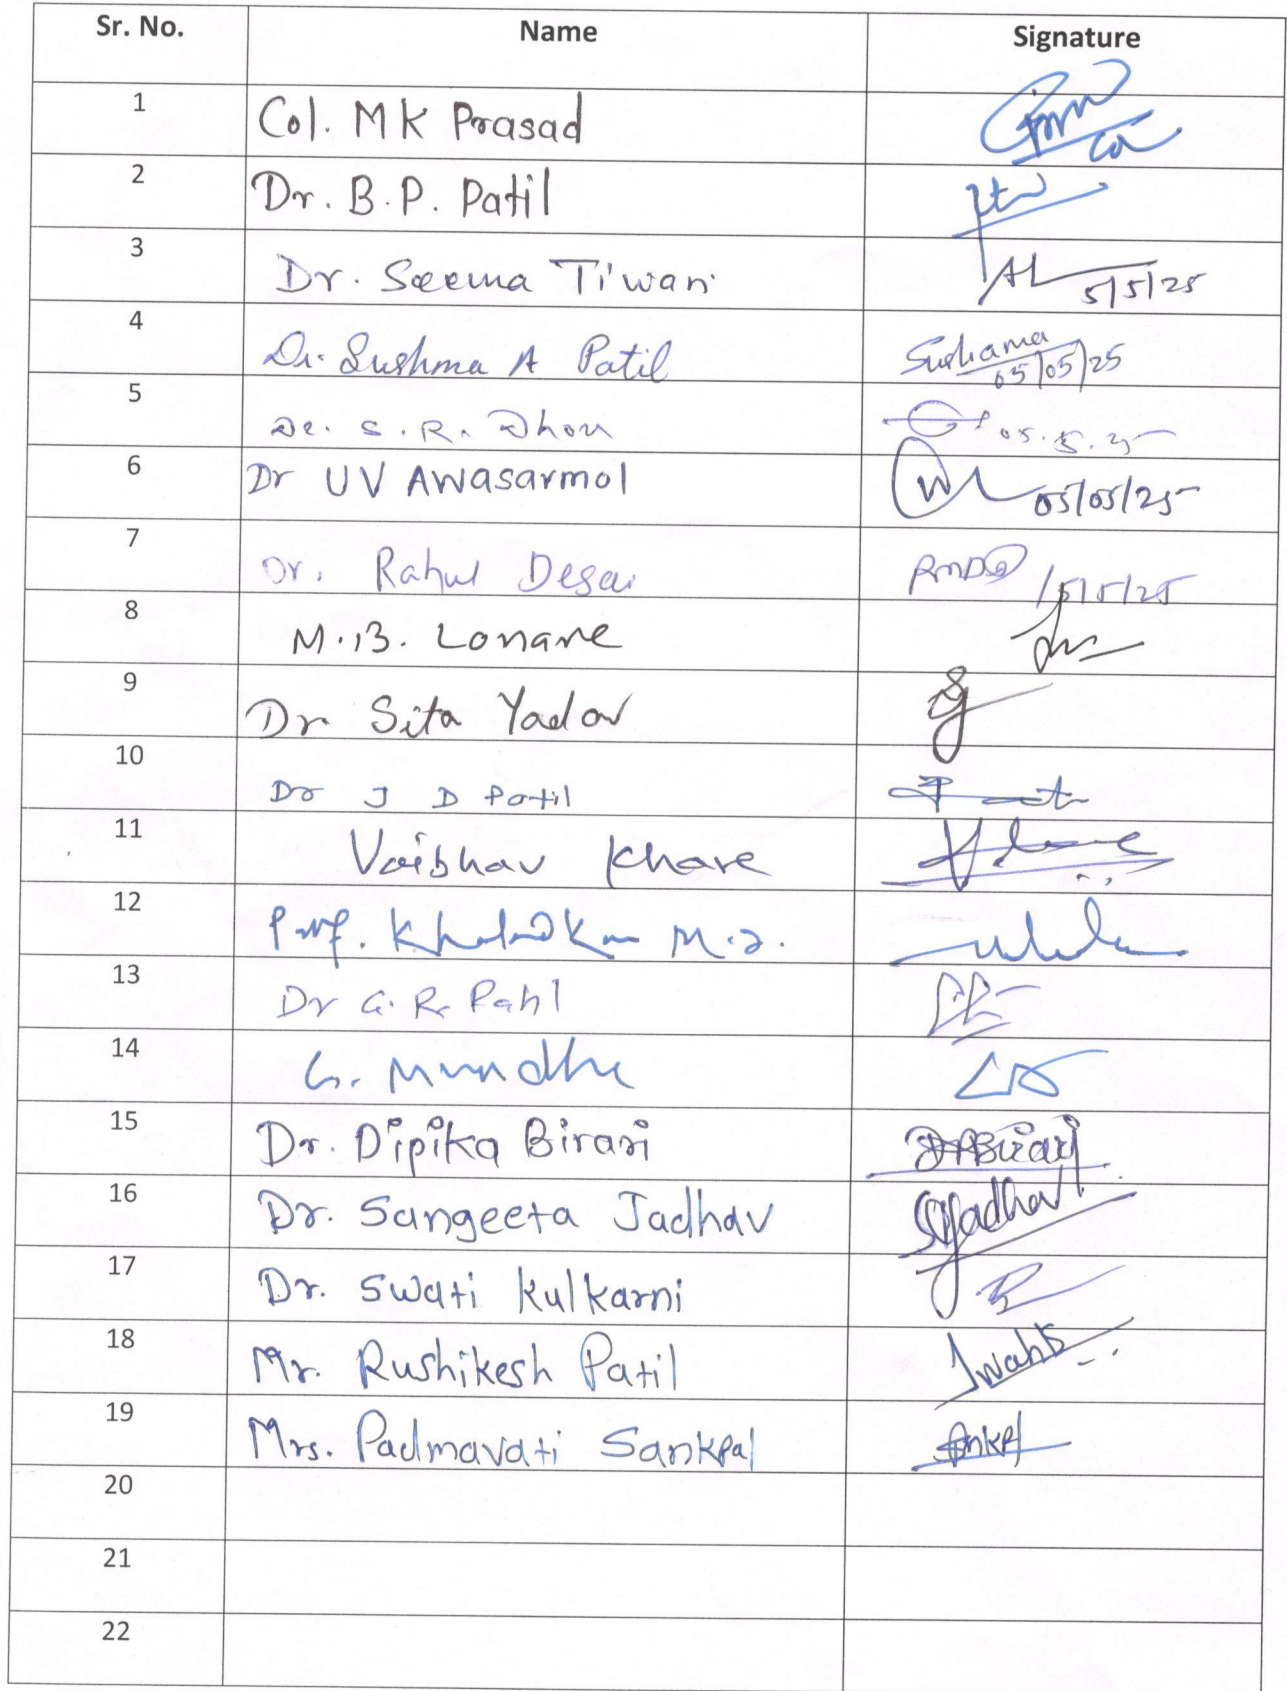 Sr. No. Name Signature
1 Col. M K Prasad
2 Dr. B.P. Patil
3 Dr. Seema Tiwari 5/5/25
4 Dr. Sushma A Patil Sushama 05/05/25
5 De. S. R. Dhore 05.5.25
6 Dr UV Awasarmol 05/05/25
7 Dr. Rahul Desai 15/5/25
8 M.B. Lonare
9 Dr Sita Yadav
10 Dr J D Patil
11 Vaibhav Khare
12 Prof. M.
13 Dr G. R. Patil
14 G. Mundhe
15 Dr. Dipika Birari DABirari
16 Dr. Sangeeta Jadhav SSJadhav
17 Dr. Swati Kulkarni
18 Mr. Rushikesh Patil
19 Mrs. Padmavati Sankpal
20
21
22